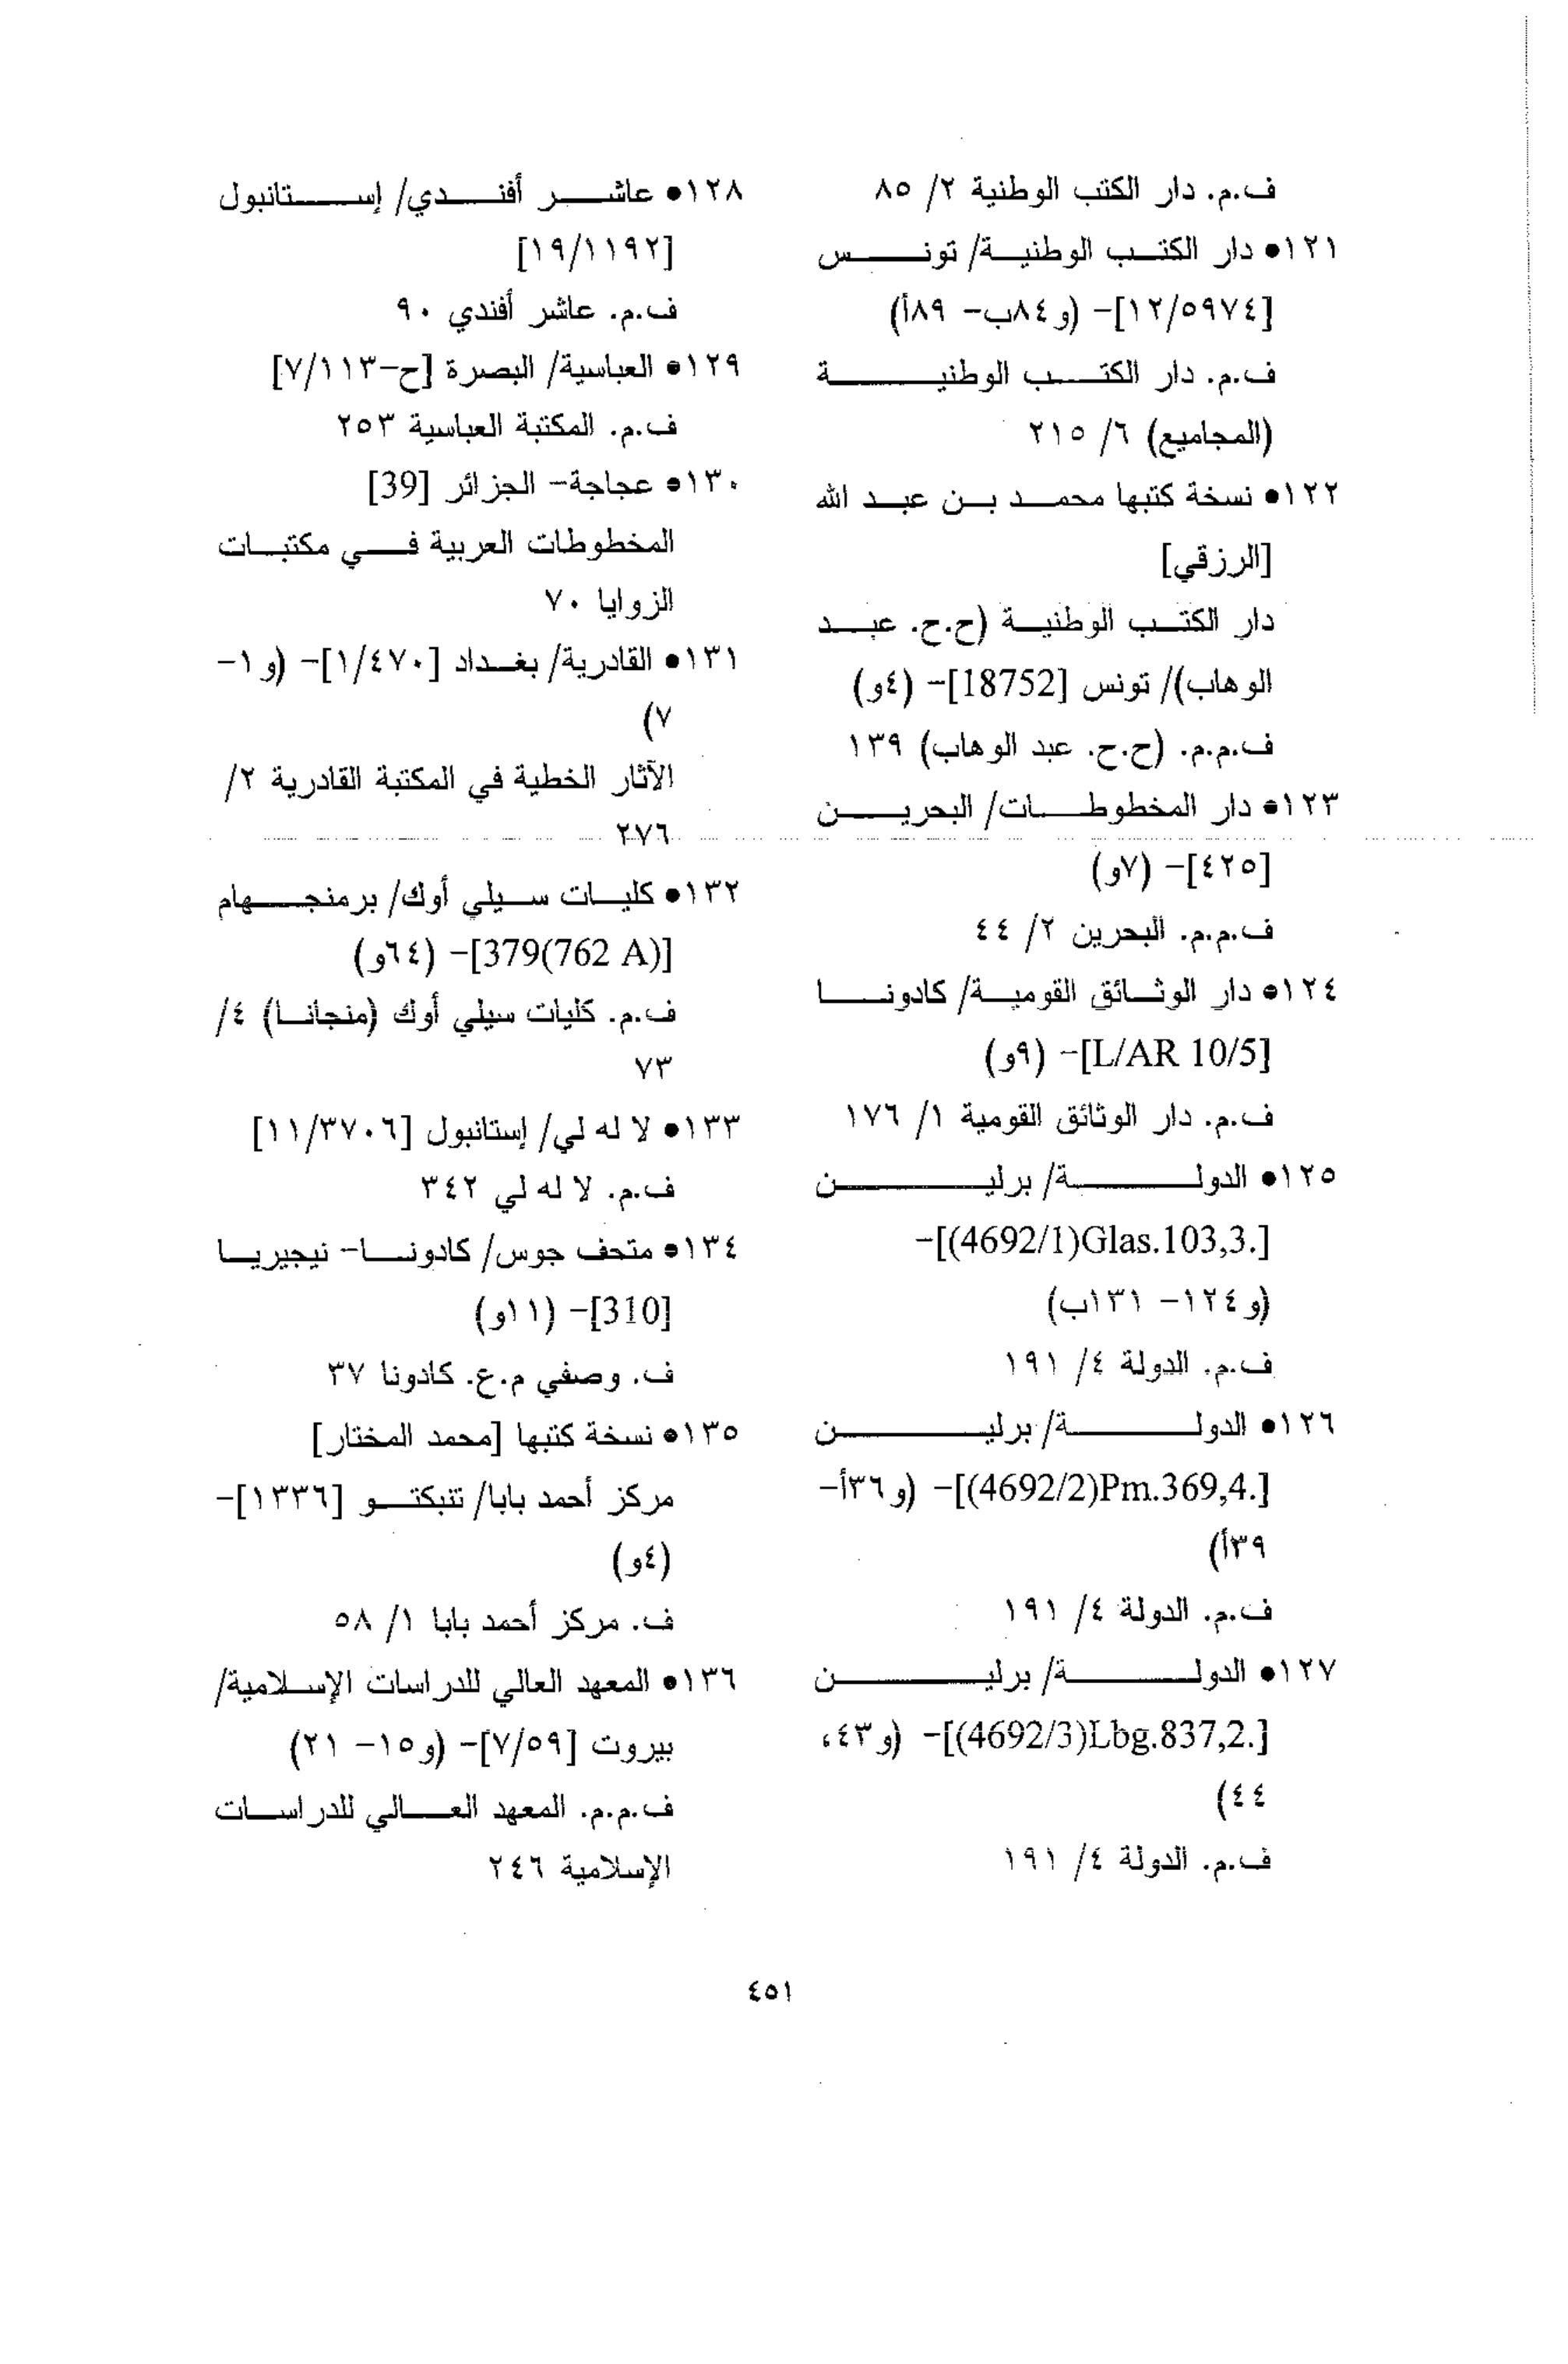 ف.م. دار الكتب الوطنية ٢/ ٨٥
١٢١• دار الكتب الوطنية/ تونس
[١٢/٥٩٧٤]- (و٨٤ب- ٨٩أ)
ف.م. دار الكتب الوطنية
(المجاميع) ٦/ ٢١٥
١٢٢• نسخة كتبها محمد بن عبد الله
[الرزقي]
دار الكتب الوطنية (ح.ح. عبد
الوهاب)/ تونس [18752]- (٤و)
ف.م.م. (ح.ح. عبد الوهاب) ١٣٩
١٢٣• دار المخطوطات/ البحرين
[٤٢٥]- (٧و)
ف.م.م. البحرين ٢/ ٤٤
١٢٤• دار الوثائق القومية/ كادونا
[L/AR 10/5]- (٩و)
ف.م. دار الوثائق القومية ١/ ١٧٦
١٢٥• الدولة/ برلين
[(4692/1)Glas.103,3.]-
(و١٢٤- ١٣١ب)
ف.م. الدولة ٤/ ١٩١
١٢٦• الدولة/ برلين
[(4692/2)Pm.369,4.]- (و٣٦أ-
٣٩أ)
ف.م. الدولة ٤/ ١٩١
١٢٧• الدولة/ برلين
[(4692/3)Lbg.837,2.]- (و٤٣،
٤٤)
ف.م. الدولة ٤/ ١٩١
١٢٨• عاشر أفندي/ إستانبول
[١٩/١١٩٢]
ف.م. عاشر أفندي ٩٠
١٢٩• العباسية/ البصرة [ح-٧/١١٣]
ف.م. المكتبة العباسية ٢٥٣
١٣٠• عجاجة- الجزائر [39]
المخطوطات العربية في مكتبات
الزوايا ٧٠
١٣١• القادرية/ بغداد [١/٤٧٠]- (و١-
٧)
الآثار الخطية في المكتبة القادرية ٢/
٢٧٦
١٣٢• كليات سيلي أوك/ برمنجهام
[379(762 A)]- (٦٤و)
ف.م. كليات سيلي أوك (منجانا) ٤/
٧٣
١٣٣• لا له لي/ إستانبول [١١/٣٧٠٦]
ف.م. لا له لي ٣٤٢
١٣٤• متحف جوس/ كادونا- نيجيريا
[310]- (١١و)
ف. وصفي م.ع. كادونا ٣٧
١٣٥• نسخة كتبها [محمد المختار]
مركز أحمد بابا/ تنبكتو [١٣٣٦]-
(٤و)
ف. مركز أحمد بابا ١/ ٥٨
١٣٦• المعهد العالي للدراسات الإسلامية/
بيروت [٧/٥٩]- (و١٥- ٢١)
ف.م.م. المعهد العالي للدراسات
الإسلامية ٢٤٦
٤٥١